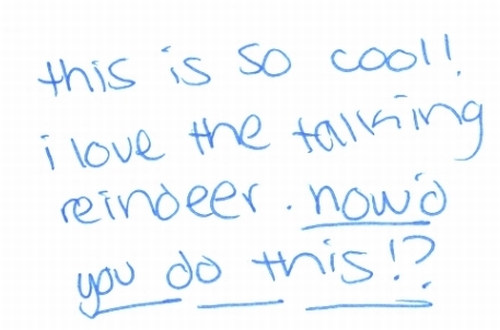 this is so cool!
i love the talking
reindeer. how'd
you do this!?